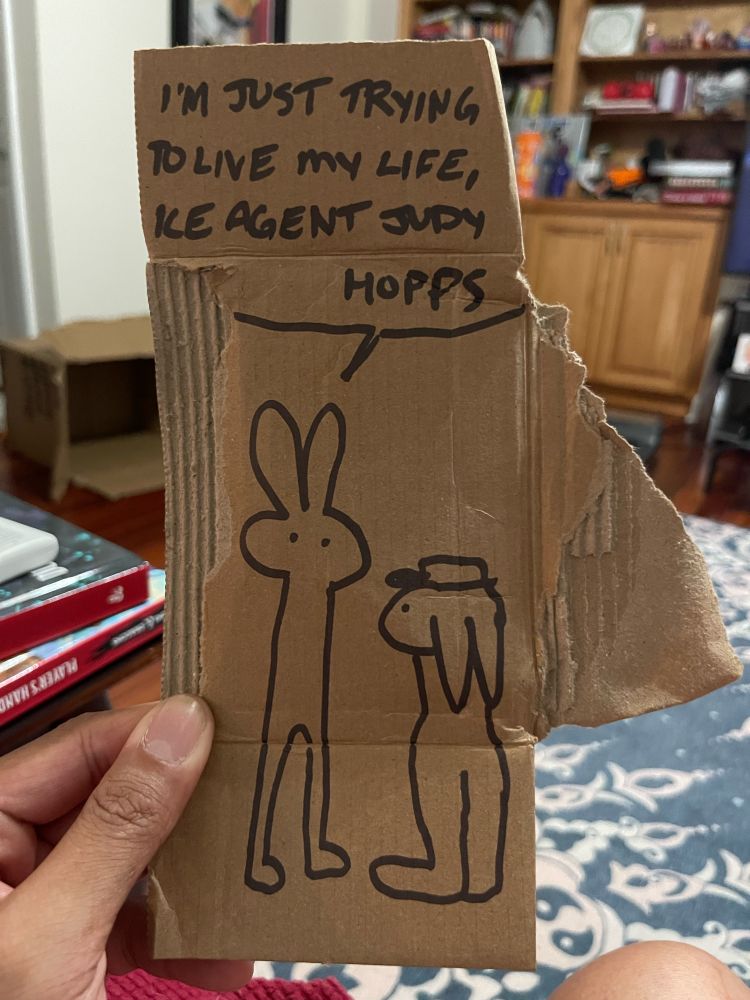 I'M JUST TRYING
TO LIVE MY LIFE,
ICE AGENT JUDY
HOPPS
PLAYER'S HAND